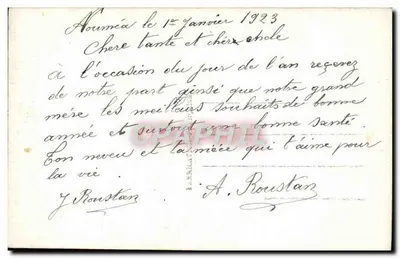 Nouméa le 1er Janvier 1923
Chere tante et chèr oncle
à l'occasion du jour de l'an reçevez
de notre part ginsi que notre grand
mére les meilleurs souhaits de bonne
année et surtout une bonne santé
Ton neveu et ta niéce qui t'aime pour
la vie.
J Roustan
A. Roustan